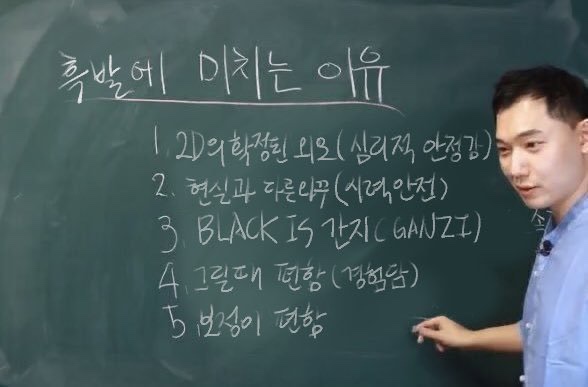 흑발에 미치는 이유
1. 2D의 확정된 외모(심리적 안정감)
2. 현실과 다른 외꾸(시력안전)
3. BLACK IS 간지(GANZI)
4. 그릴때 편함(경험담)
5. 보정이 편함